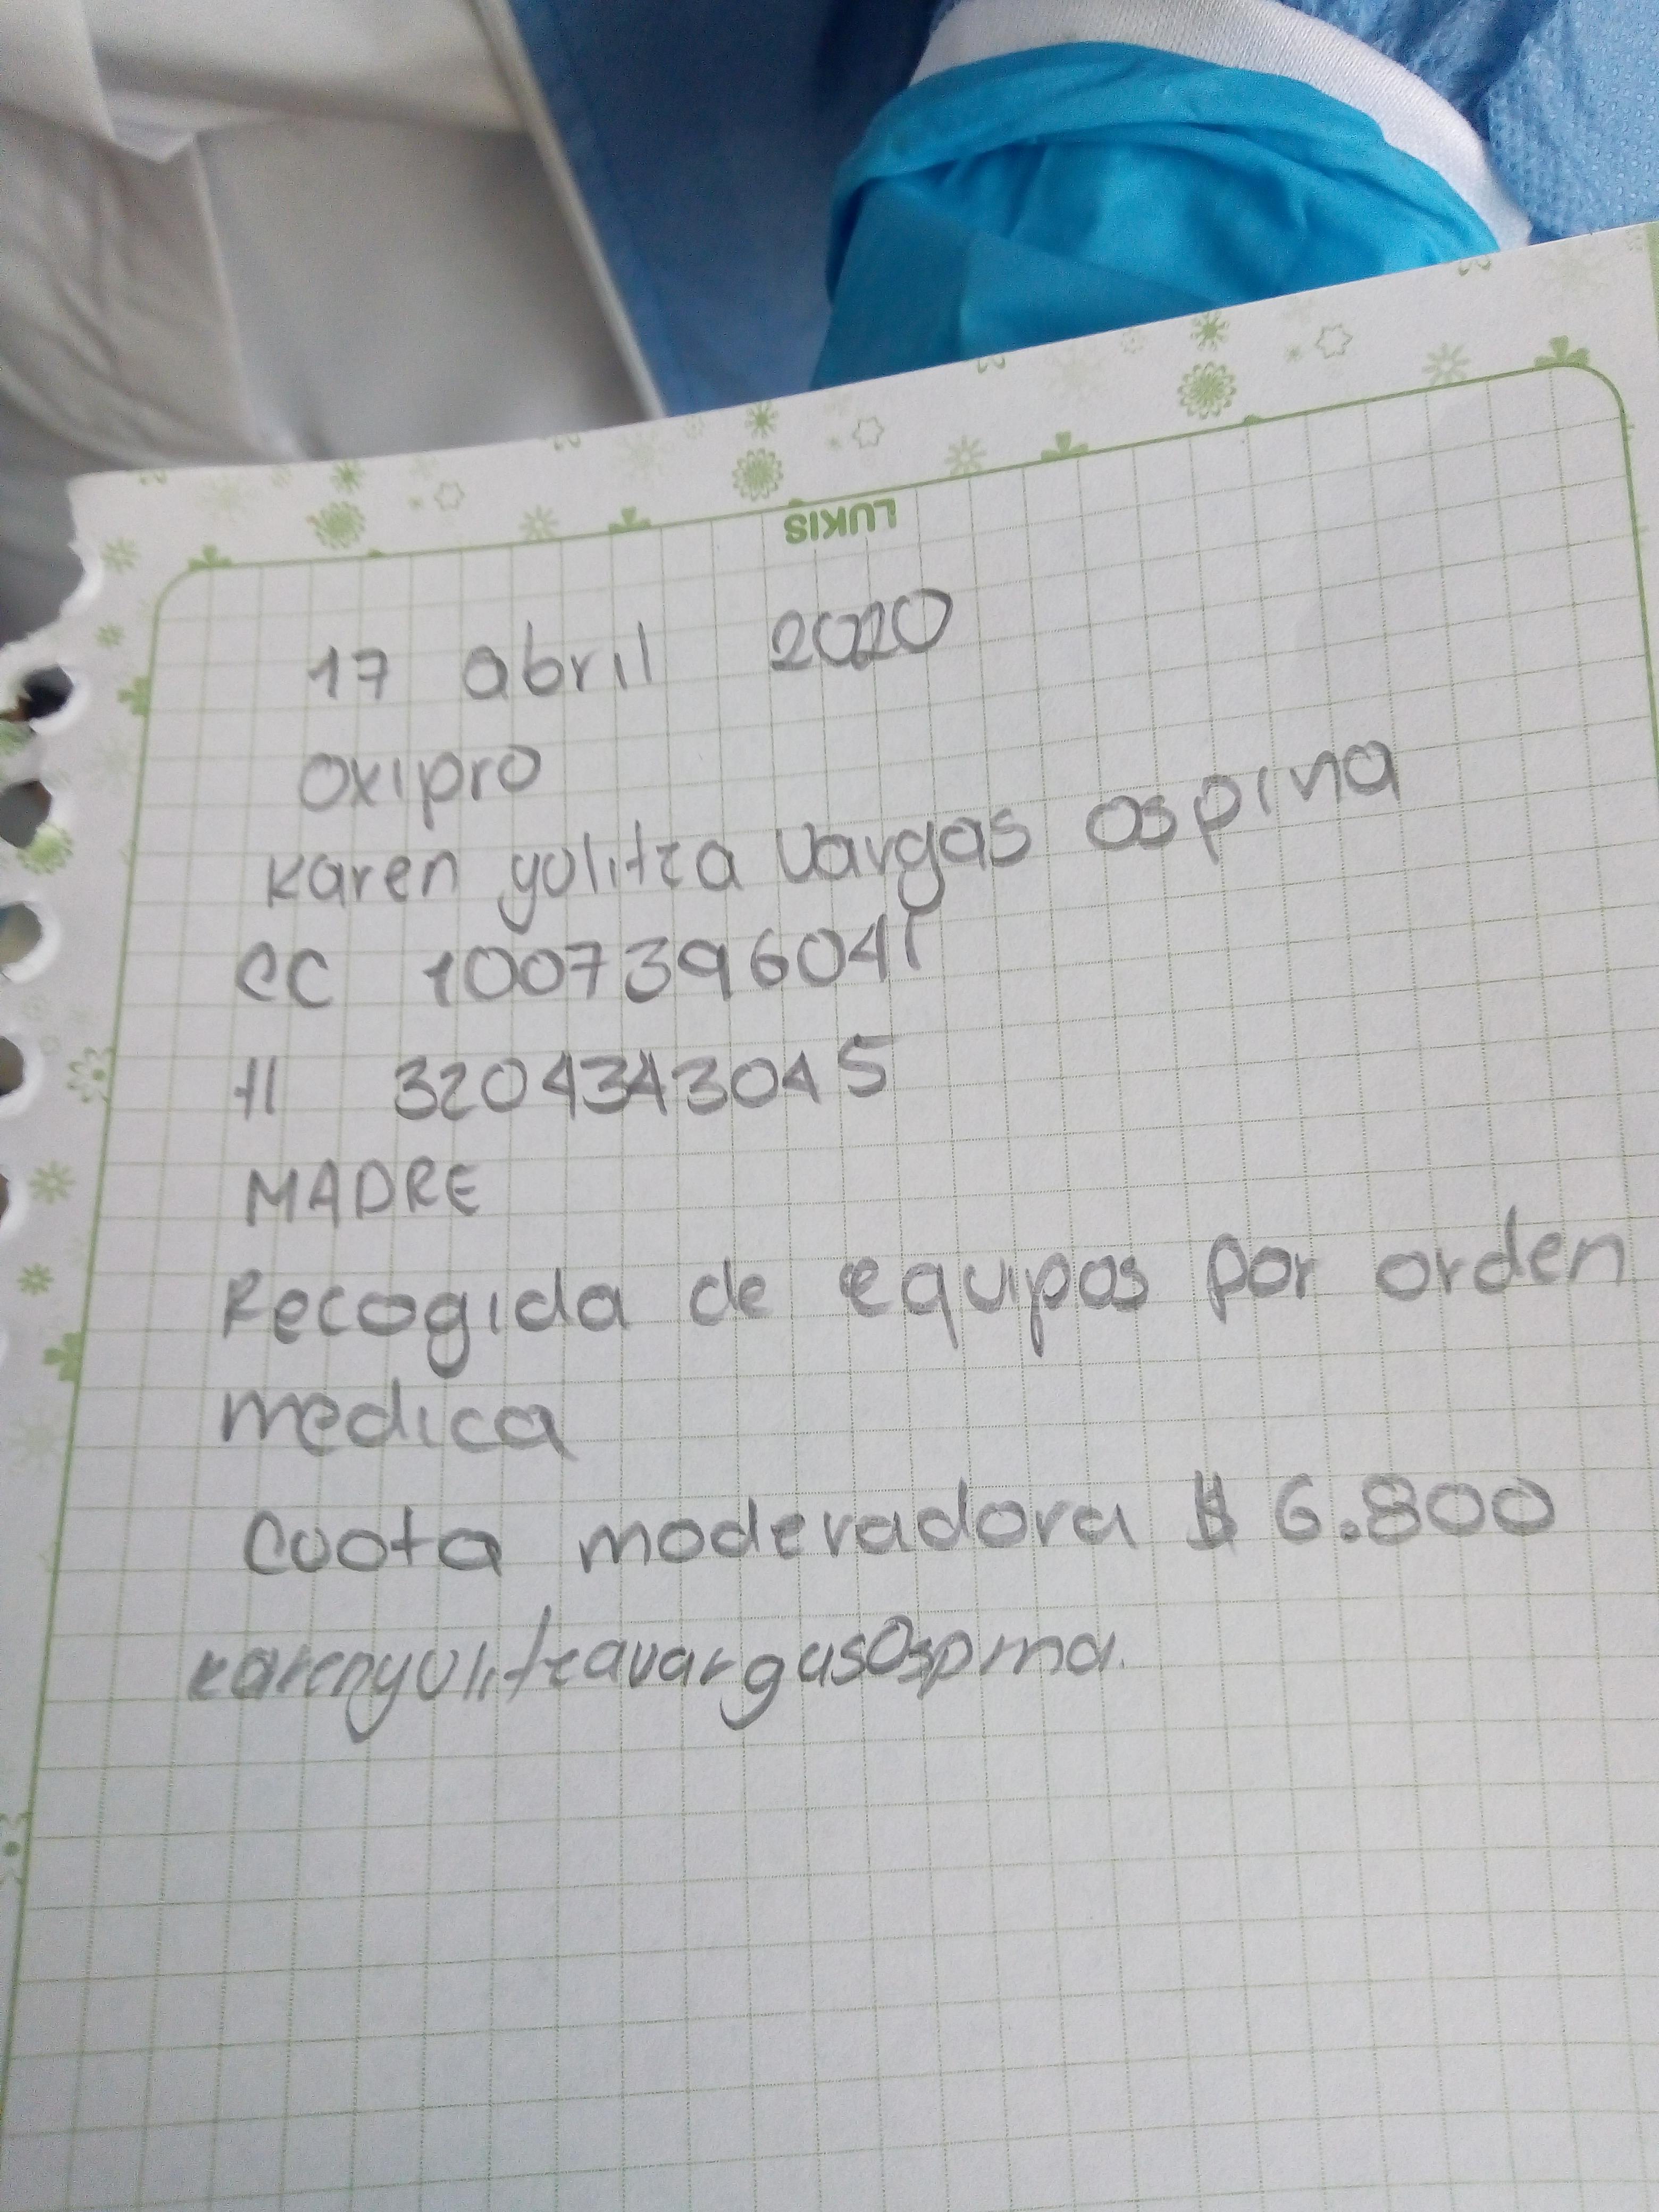 LUKIS
17 abril 2020
Oxipro
Karen yulitza Vargas ospina
CC 1007396041
tl 3204343045
MADRE
Recogida de equipos por orden
medica
Cuota moderadora $ 6.800
karenyulitzavargasOspina.